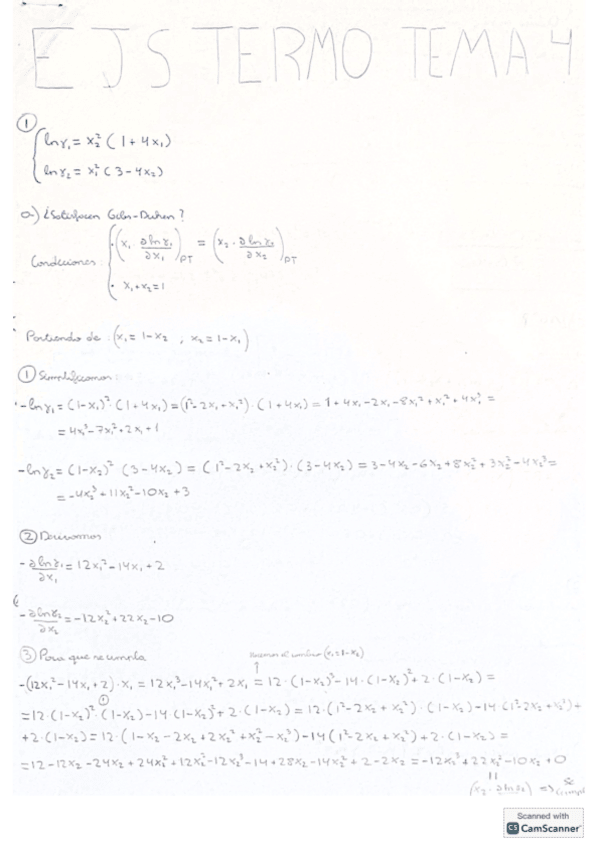 EJS TERMO TEMA 4
①
{ lnγ₁ = x₂² (1 + 4x₁)
{ lnγ₂ = x₁² (3 - 4x₂)
a) ¿Satisfacen Gibs-Duhen?
Condiciones: { · (x₁ · ∂lnγ₁/∂x₁)PT = (x₂ · ∂lnγ₂/∂x₂)PT
· x₁ + x₂ = 1
Partiendo de: (x₁ = 1 - x₂ ; x₂ = 1 - x₁)
① Simplificamos:
- lnγ₁ = (1-x₁)² · (1 + 4x₁) = (1² - 2x₁ + x₁²) · (1 + 4x₁) = 1 + 4x₁ - 2x₁ - 8x₁² + x₁² + 4x₁³ =
= 4x₁³ - 7x₁² + 2x₁ + 1
- lnγ₂ = (1-x₂)² (3 - 4x₂) = (1² - 2x₂ + x₂²) · (3 - 4x₂) = 3 - 4x₂ - 6x₂ + 8x₂² + 3x₂² - 4x₂³ =
= -4x₂³ + 11x₂² - 10x₂ + 3
② Derivamos
- ∂lnγ₁/∂x₁ = 12x₁² - 14x₁ + 2
- ∂lnγ₂/∂x₂ = -12x₂² + 22x₂ - 10
③ Para que se cumpla
Hacemos el cambio (x₁ = 1 - x₂)
- (12x₁² - 14x₁ + 2) · x₁ = 12x₁³ - 14x₁² + 2x₁ = 12 · (1-x₂)³ - 14 · (1-x₂)² + 2 · (1-x₂) =
= 12 · (1-x₂)² · (1-x₂) - 14 (1-x₂)² + 2 · (1-x₂) = 12 · (1² - 2x₂ + x₂²) · (1-x₂) - 14 · (1² - 2x₂ + x₂²) +
+ 2 · (1-x₂) = 12 · (1 - x₂ - 2x₂ + 2x₂² + x₂² - x₂³) - 14 (1² - 2x₂ + x₂²) + 2 · (1-x₂) =
= 12 - 12x₂ - 24x₂ + 24x₂² + 12x₂² - 12x₂³ - 14 + 28x₂ - 14x₂² + 2 - 2x₂ = -12x₂³ + 22x₂² - 10x₂ + 0
(x₂ · ∂lnγ₂ => se
Scanned with
CS CamScanner